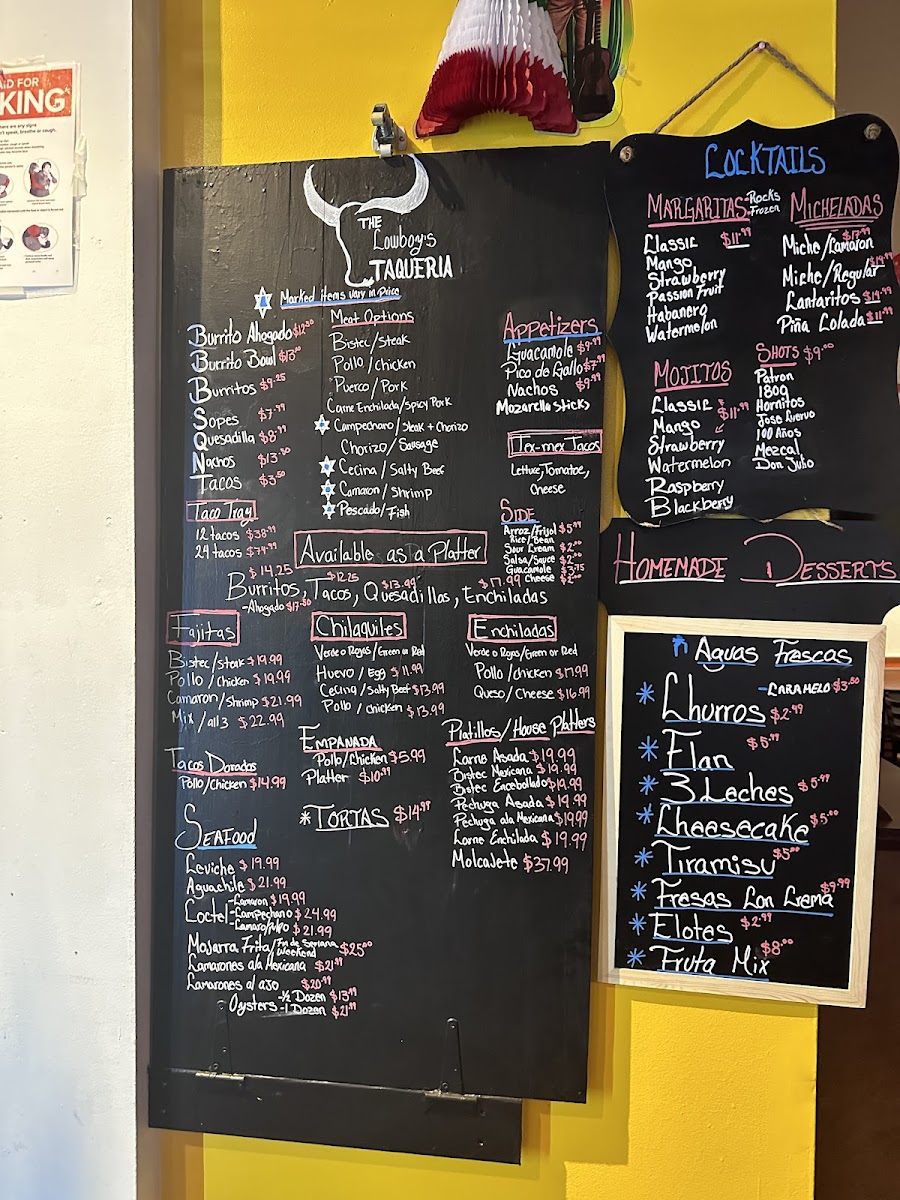 AID FOR
KING
THE
Cowboy's
TAQUERIA
Marked Items Vary in Price
Burrito Ahogado $12.50
Burrito Bowl $13.00
Burritos $9.25
Sopes $7.99
Quesadilla $8.99
Nachos $13.50
Tacos $3.50
Taco Tray
12 tacos $38.99
24 tacos $74.99
Meat Options
Bistec/Steak
Pollo/Chicken
Puerco/Pork
Carne Enchilada/Spicy Pork
Campechano/Steak + Chorizo
Chorizo/Sausage
Cecina/Salty Beef
Camaron/Shrimp
Pescado/Fish
Appetizers
Guacamole $9.99
Pico de Gallo $7.99
Nachos $9.99
Mozarella sticks
Tex-mex Tacos
Lettuce, Tomatoe,
Cheese
SIDE
Arroz/Frijol $5.99
Rice/Bean
Sour Cream $2.00
Salsa/Sauce $2.00
Guacamole $3.75
Cheese $2.00
Available as a Platter
$14.25 $12.25 $13.99 $17.99
Burritos, Tacos, Quesadillas, Enchiladas
-Ahogado $17.50
Fajitas
Bistec/Steak $19.99
Pollo/Chicken $19.99
Camaron/Shrimp $21.99
Mix/all 3 $22.99
Chilaquiles
Verde o Rojas/Green or Red
Huevo/Egg $11.99
Cecina/Salty Beef $13.99
Pollo/Chicken $13.99
Enchiladas
Verde o Rojas/Green or Red
Pollo/Chicken $17.99
Queso/Cheese $16.99
Tacos Dorados
Pollo/Chicken $14.99
EMPANADA
Pollo/Chicken $5.99
Platter $10.99
*TORTAS $14.99
Platillos/House Platters
Carne Asada $19.99
Bistec Mexicana $19.99
Bistec Encebollado $19.99
Pechuga Asada $19.99
Pechuga ala Mexicana $19.99
Carne Enchilada $19.99
Molcajete $37.99
SEAFOOD
Ceviche $19.99
Aguachile $21.99
Coctel -Camaron $19.99
-Campechano $24.99
-Camaro/pulpo $21.99
Mojarra Frita/Fin de Semana Weekend $25.00
Camarones ala Mexicana $21.99
Camarones al ajo $20.99
Oysters -1/2 Dozen $13.99
-1 Dozen $21.99
COCKTAILS
MARGARITAS -Rocks
-Frozen
Classic $11.99
Mango
Strawberry
Passion Fruit
Habanero
Watermelon
MICHELADAS
Miche/Camaron $17.99
Miche/Regular $14.99
Cantaritos $14.99
Piña Colada $11.99
MOJITOS
Classic
Mango $11.99
Strawberry
Watermelon
Raspberry
Blackberry
SHOTS $9.00
Patron
1800
Hornitos
Jose Cuervo
100 Años
Mezcal
Don Julio
HOMEMADE DESSERTS
Aguas Frescas
-CARAMELO $3.50
* Churros $2.99
* Flan $5.99
* 3 Leches $5.99
* Cheesecake $5.00
* Tiramisu $5.00
* Fresas Con Crema $9.99
* Elotes $2.99
* Fruta Mix $8.00